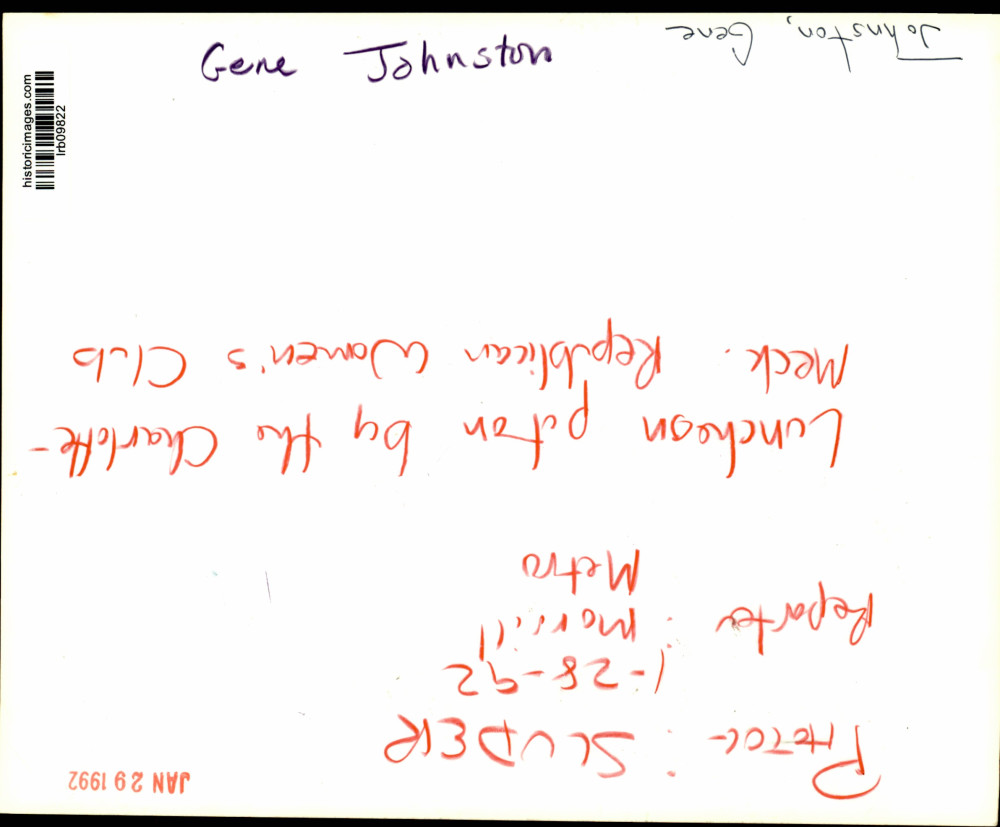 Gene Johnston
Johnston, Gene
historicimages.com
lrb09822
JAN 29 1992
PHOTOG: SLUDER
1-28-92
Reporter: Morrill
Metro
Luncheon put on by the Charlotte-
Meck. Republican Women's Club